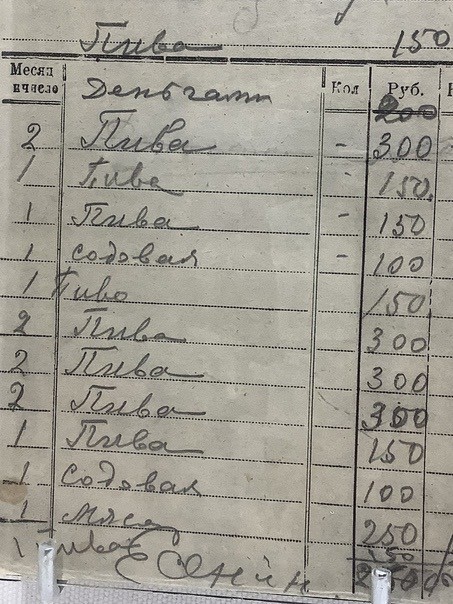 Пива 150
Месяц и число Деньгами Кол Руб.
200
2 Пива - 300
1 Пива - 150
1 Пива - 150
1 содовая - 100
1 Пиво 150
2 Пива 300
2 Пива 300
2 Пива 300
1 Пива 150
1 Содовая 100
1 мясо 250
1 Пиво 150